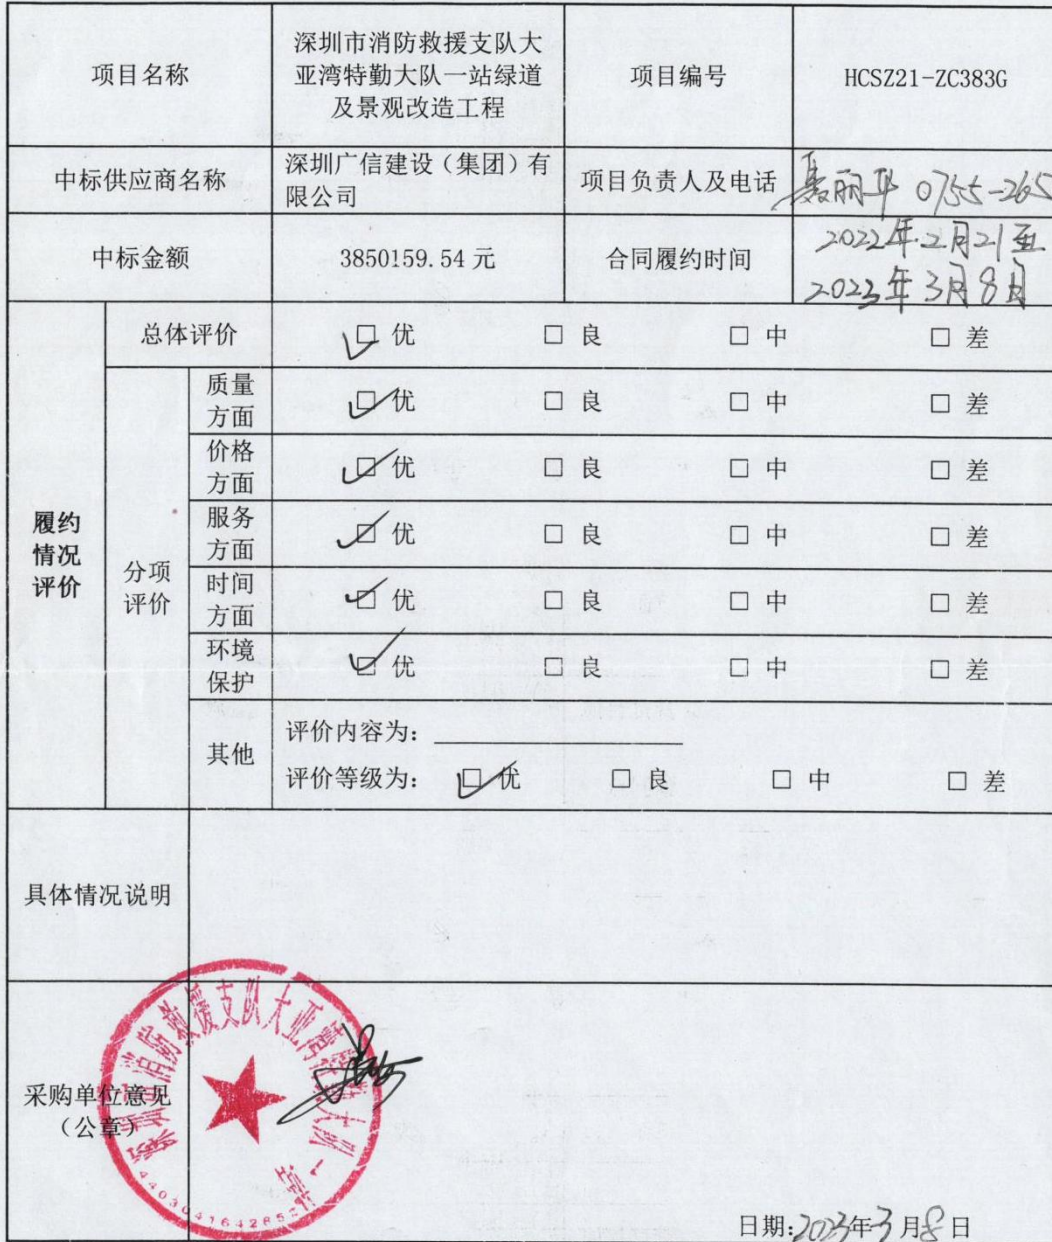 项目名称
深圳市消防救援支队大
亚湾特勤大队一站绿道
及景观改造工程
项目编号
HCSZ21-ZC383G
中标供应商名称
深圳广信建设（集团）有
限公司
项目负责人及电话
聂丽华 0755-265
中标金额
3850159.54 元
合同履约时间
2022年2月21至
2023年3月8日
履约
情况
评价
总体评价
□ 优 □ 良 □ 中 □ 差
分项
评价
质量
方面
□ 优 □ 良 □ 中 □ 差
价格
方面
□ 优 □ 良 □ 中 □ 差
服务
方面
□ 优 □ 良 □ 中 □ 差
时间
方面
□ 优 □ 良 □ 中 □ 差
环境
保护
□ 优 □ 良 □ 中 □ 差
其他
评价内容为：
评价等级为： □ 优 □ 良 □ 中 □ 差
具体情况说明
采购单位意见
（公章）
深圳市消防救援支队大亚湾特勤大队一站
日期:2023年3月8日